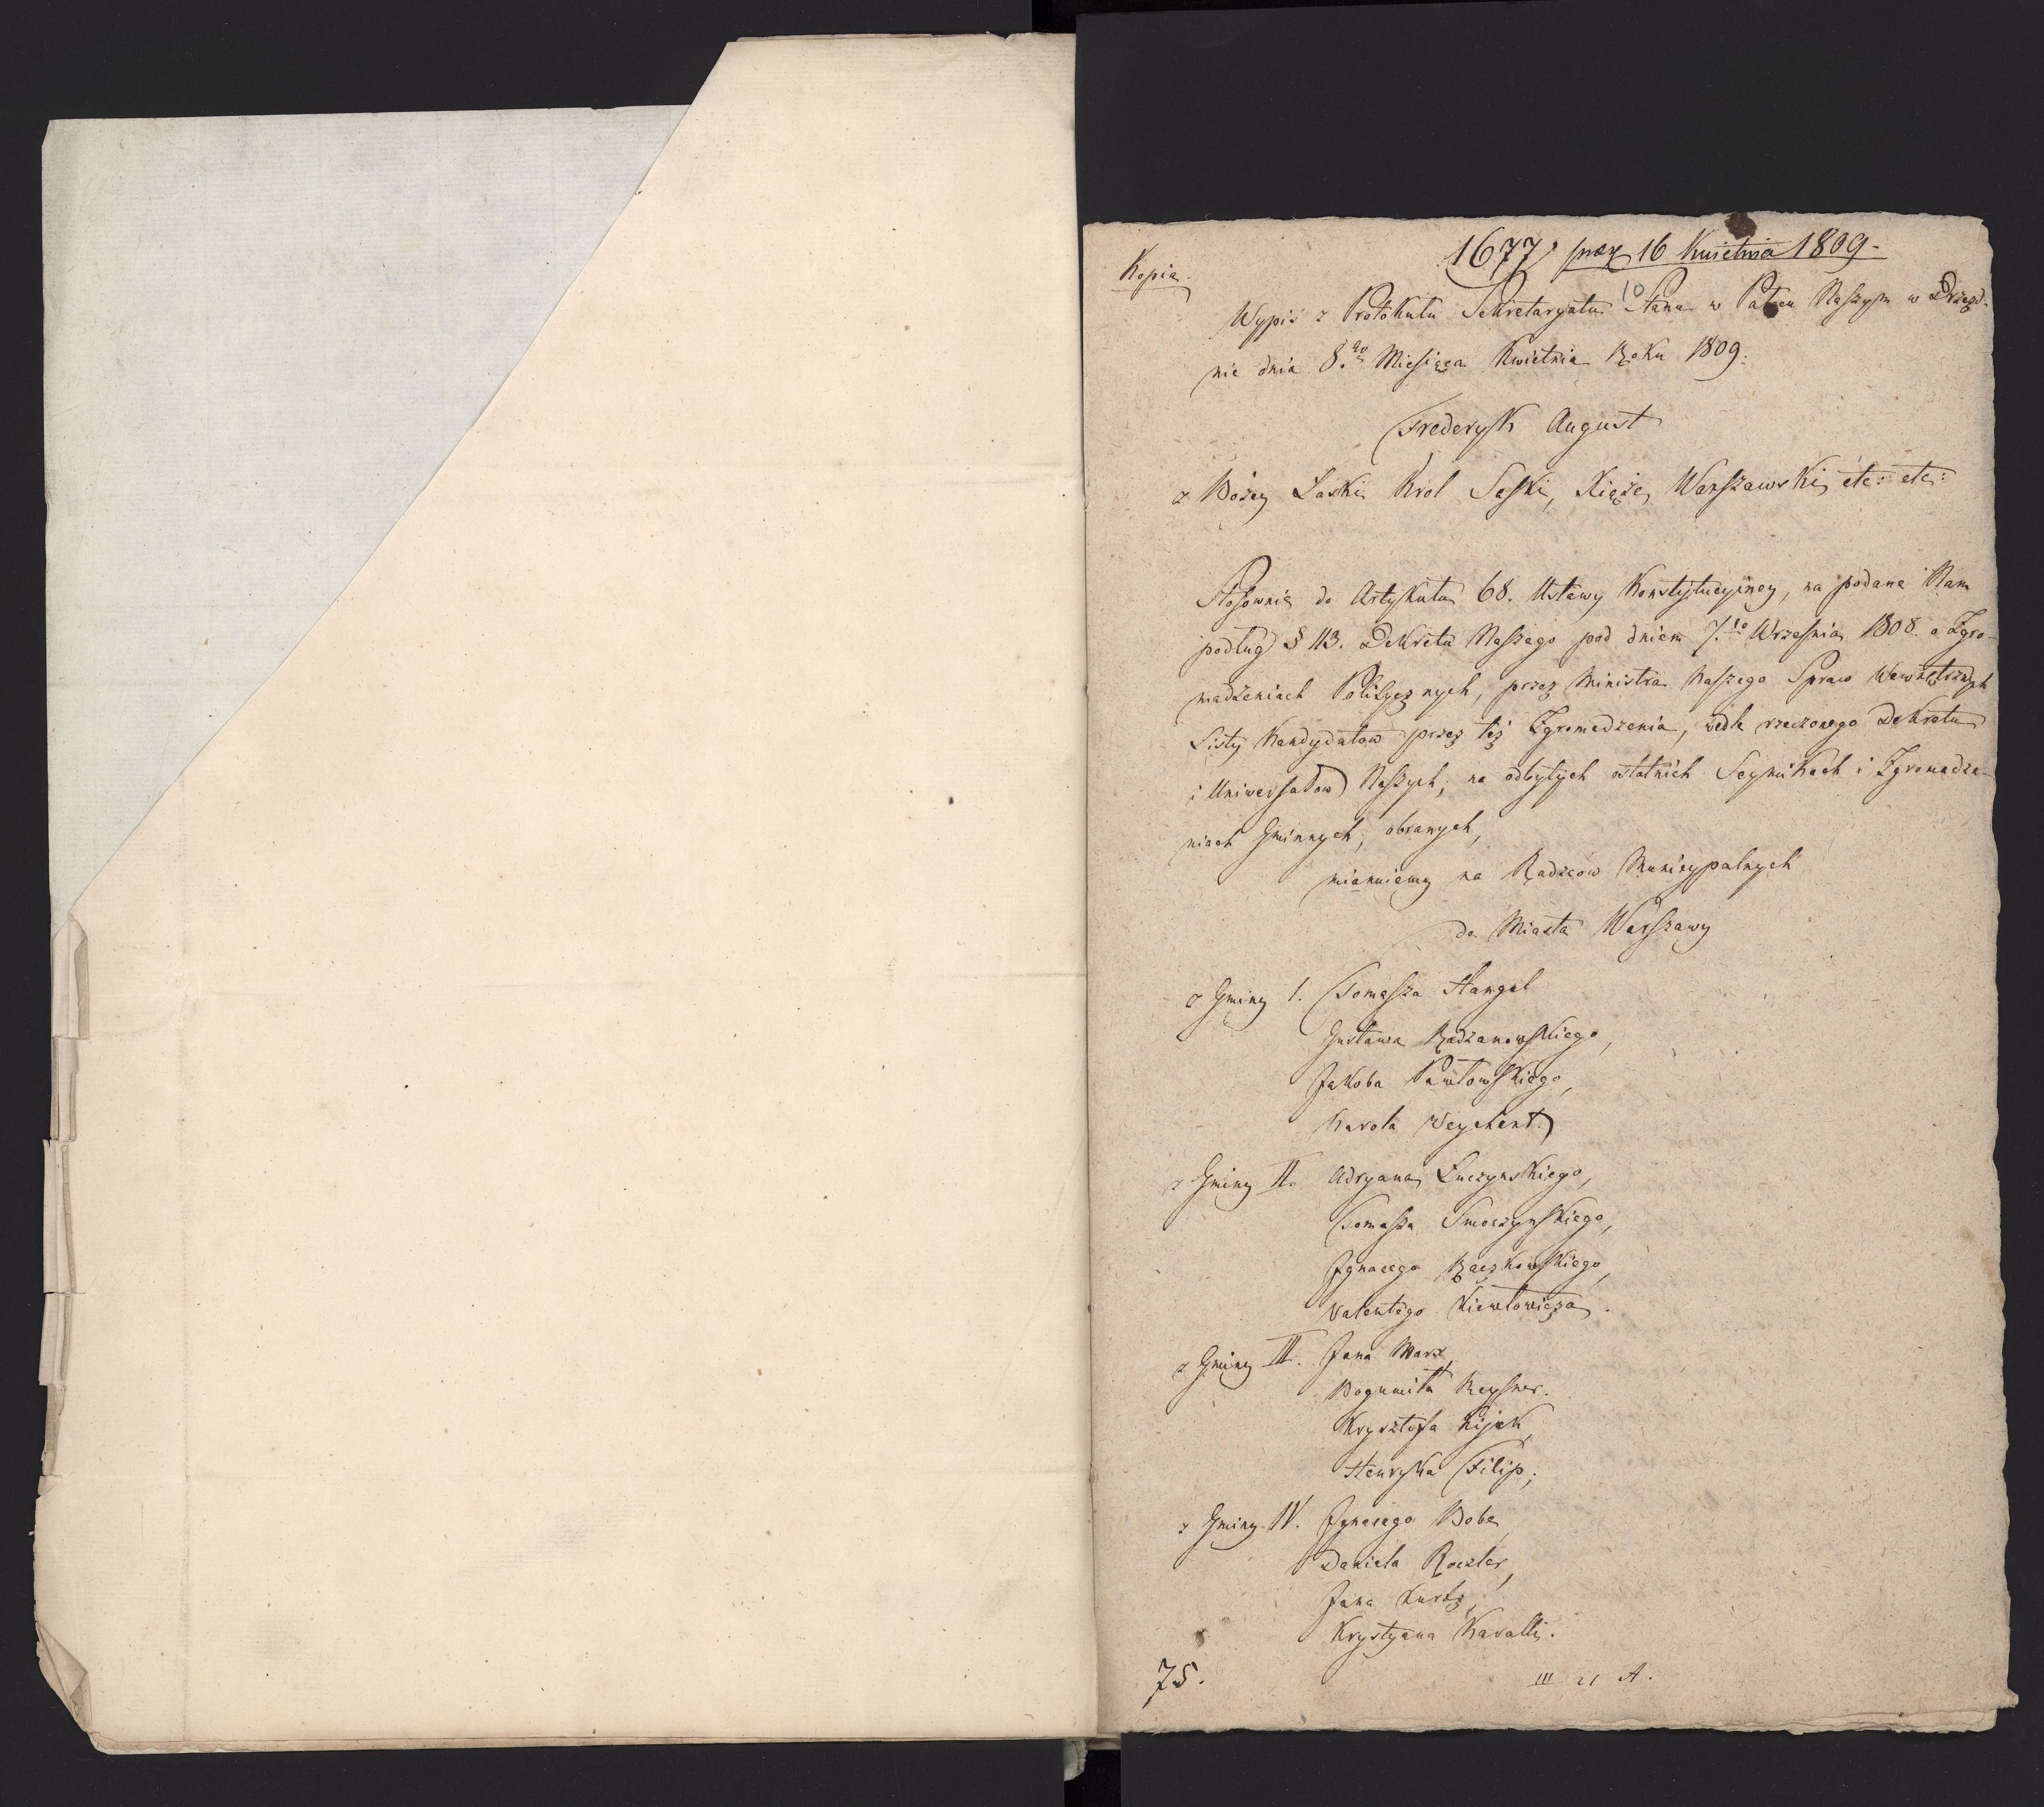 1677 præs 16 Kwietnia 1809-
Kopia
10
Wypis z Protokułu Sekretaryatu Stanu w Pałacu Naszym w Drezd-
nie dnia 8.go Miesiąca Kwietnia Roku 1809.
Frederyk August
z Bożey Łaski Krol Saski, Xiąże Warszawski etc: etc:
Stosownie do Artykułu 68. Ustawy Konstytucyiney, na podane Nam
podług § 113. Dekretu Naszego pod dniem 7.go Września 1808. o Zgro-
madzeniach Politycznych, przez Ministra Naszego Spraw Wewnętrznych
Listy Kandydatow przez też Zgromadzenia, wedle rzeczonego Dekretu
i Uniwersałow Naszych, na odbytych ostatnich Seymikach i Zgromadze-
niach Gminnych, obranych,
mianuiemy na Radzcow Municypalnych
do Miasta Warszawy
z Gminy I. Tomasza Hangel
Gustawa Radzanowskiego,
Jakoba Pawłowskiego,
Karola Weychert.
z Gminy II. Adryana Łuczynskiego,
Tomasza Smoczynskiego,
Ignacego Raczkowskiego,
Valentego Kiewłowicza.
z Gminy III. Jana Marx
Bogumiła Reysner.
Krysztofa Kijok,
Henryka Filip,
z Gminy IV. Ignacego Boba
Daniela Roesler,
Jana Kurtz,
Krystyana Kavalli.
75.
III 21 A.